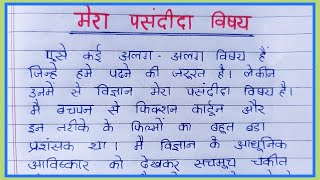 मेरा पसंदीदा विषय
एसे कई अलग - अलग विषय हैं
जिन्हे हमे पढने की जरूरत है। लेकीन
उनमें से विज्ञान मेरा पसंदीदा विषय है।
मै बचपन से फिक्शन कार्टून और
इन तरीके के फिल्मों का बहुत बडा
प्रशंसक था । मैं विज्ञान के आधुनिक
आविष्कार को देखकर सचमुच चकीत